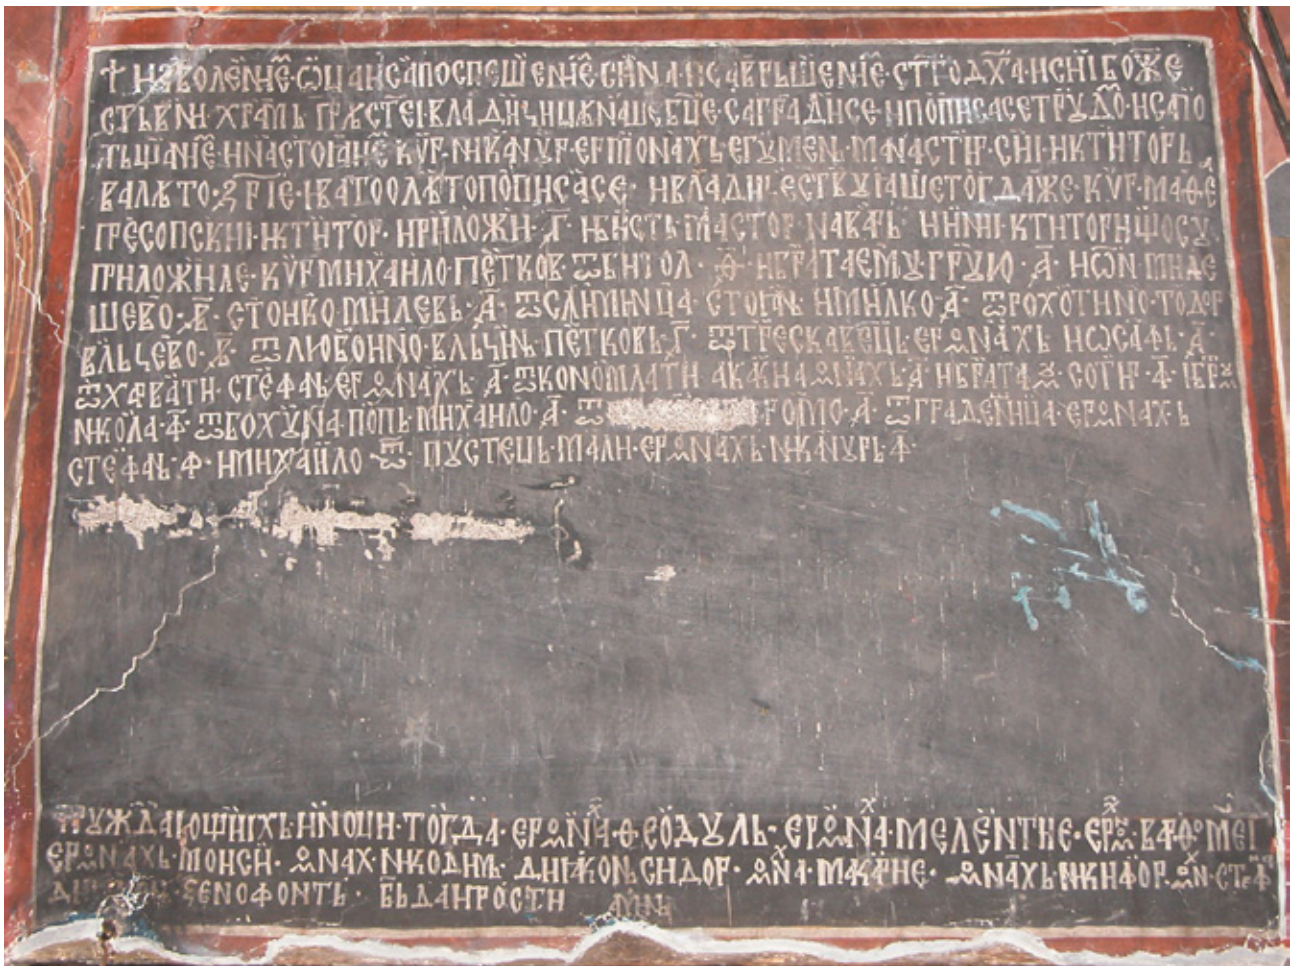 † Изволенїе ѡца и сапоспешенїе сина и саврьшенїе ст҃го дх҃а и сиі боже
стьвни храмь прѣст҃еі владичицѧ наше бц҃е сагради се и пописа се трудо и сь по
тьщанїе и настоꙗнїе кѵр никанѵр ермонахь егумен манастир сиі и ктиторь
ва лѣто ҂з҃ р҃ і҃е и ва тоо лѣто пописа се и владичествуꙗще тогда же кѵр маѳе
пресопскиі и ктитор и приложи г҃
приложиле кѵр михаило петков ѿ битол ѳ҃ и брата ему грую а҃
шево в҃ стоико милевь а҃ ѿ слимница стопан и милко а҃ ѿ рохотино тодор
вльчево в҃ ѿ любоино вльчин петковь г҃ ѿ трескавець ерѡмнахь иѡсафь а҃
ѿ хаввати стефань ерѡмнахь а҃ ѿ кономлати акакиа ѡмнахь а҃ и брата му сотир а҃ і брт му
никола а҃ ѿ бохуна попь михаило а҃ ѿ ромо а҃ ѿ граденица ерѡмнахь
стефань а҃ и михаило ѿ пустець мали ерѡмнахь никанурь а҃
труждающиіхь и нощи тогда ерѡмна ѳеодуль ерѡмна мелентие ерѡм варѳоломеі
ерѡмнахь моиси ѡмнах никодим диꙗкон сидор ѡмна макарие ѡмнахь никифор ѡмн стеф
диꙗкон ѯенофонть вь даипрости амин